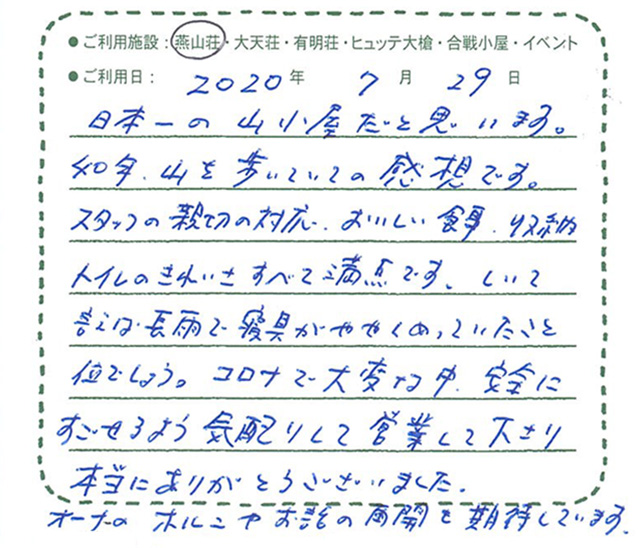 ●ご利用施設：燕山荘・大天荘・有明荘・ヒュッテ大槍・合戦小屋・イベント
●ご利用日：2020年 7月 29日
日本一の山小屋だと思います。
40年、山を歩いていての感想です。
スタッフの親切の対応、おいしい食事、収納
トイレのきれいさすべて満点です。しいて
言えば長雨で寝具がややしめっていたこと
位でしょう。コロナで大変な中、安全に
すごせるよう気配りして営業して下さり
本当にありがとうございました。
オーナーの ホルンやお話の再開を期待しています。